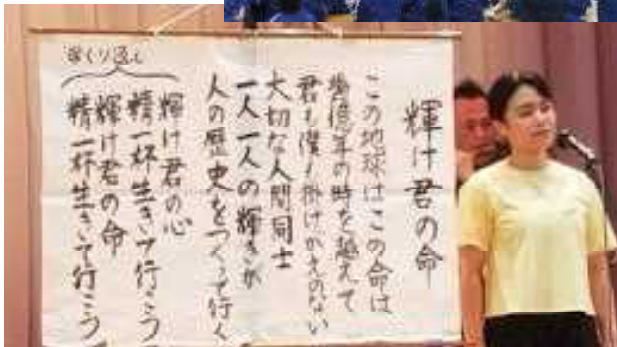 輝け君の命
この地球はこの命は
幾億年の時を越えて
君も僕も掛けがえのない
大切な人間同士
一人一人の輝きが
人の歴史をつくって行く
輝け君の心
精一杯生きて行こう
輝け君の命
精一杯生きて行こう
くり返し